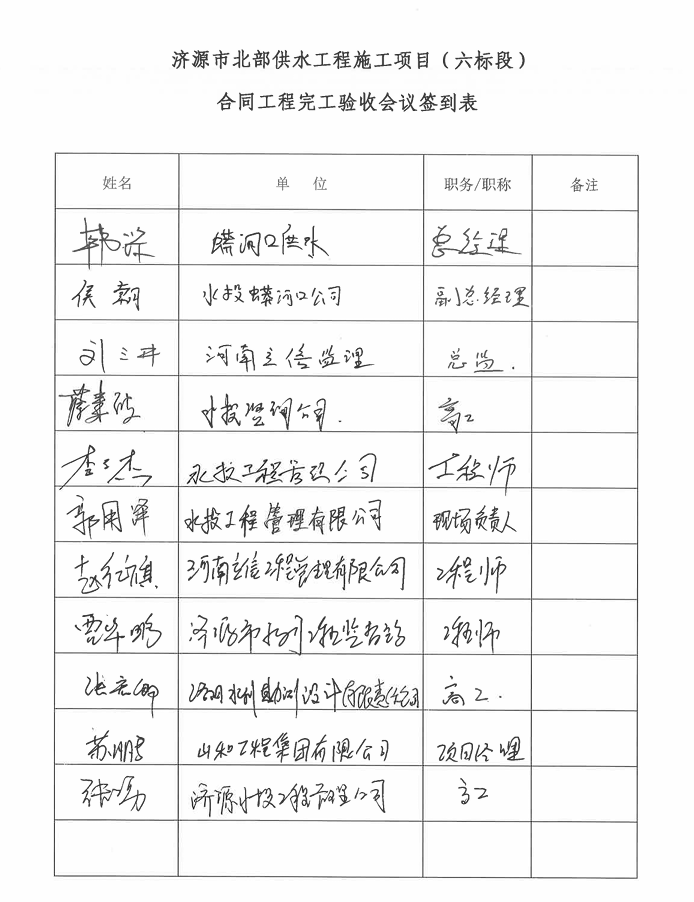 济源市北部供水工程施工项目（六标段）
合同工程完工验收会议签到表
姓名 单 位 职务/职称 备注
韩深 蟒河口供水 总经理
侯朝 水投蟒河口公司 副总经理
刘三井 河南立信监理 总监.
水投管理公司. 高工
李杰 水投工程管理公司 工程师
郭用泽 水投工程管理有限公司 现场负责人
赵红旗 河南立信工程管理有限公司 工程师
贾华鹏 济源市水利工程监督站 工程师
张 水利勘测设计有限责任公司 高工.
苏鹏 山和工程集团有限公司 项目经理
张勇 济源水投工程管理公司 高工